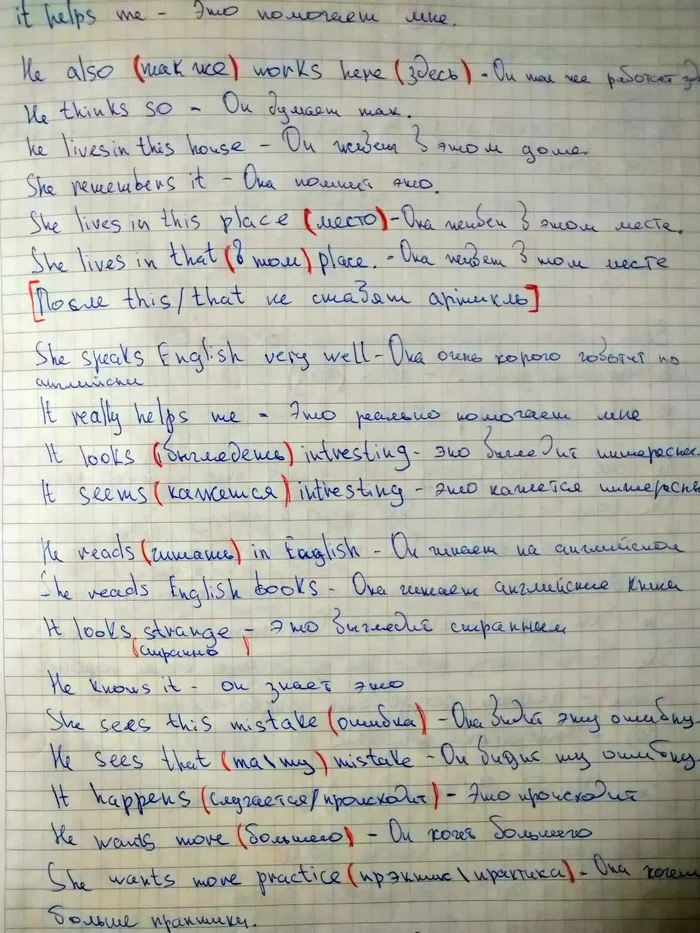 it helps me - Это помогает мне.
He also (так же) works here (здесь) - Он так же работает зд
He thinks so - Он думает так.
he lives in this house - Он живет в этом доме.
She remembers it - Она помнит это.
She lives in this place (место) - Она живет в этом месте.
She lives in that (в том) place. - Она живет в том месте
[После this/that не ставят артикль]
She speaks English very well - Она очень хорого говотит по
английски
It really helps me - Это реально помогает мне
It looks (выгледеть) intresting - это выгледит интереснее
It seems (кажется) intresting - это кажется интересны
He reads (читать) in English - Он читает на английском
She reads English books - Она читает английские книги
It looks strange - это выгледит странным
(странно)
He knows it - он знает это
She sees this mistake (ошибка) - Она видит эту ошибку
He sees that (та\ту) mistake - Он видит ту ошибку
It happens (случается/происходит) - Это происходит
He wants more (большего) - Он хочет большего
She wants more practice (прэктис\практика) - Она хочет
больше практики.